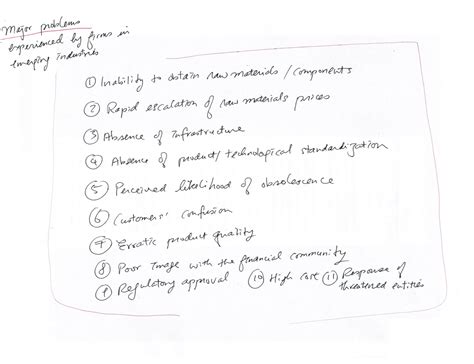 Major problems
experienced by firms in
emerging industries
① Inability to obtain raw materials / components
② Rapid escalation of raw materials prices
③ Absence of infrastructure
④ Absence of product/technological standardization
⑤ Perceived likelihood of obsolescence
⑥ Customers' confusion
⑦ Erratic product quality
⑧ Poor image with the financial community
⑨ Regulatory approval ⑩ High cost ⑪ Response of
threatened entities